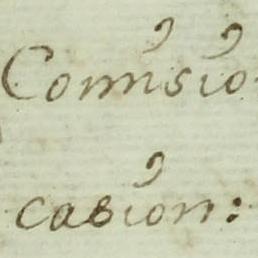 Comisio
casion: